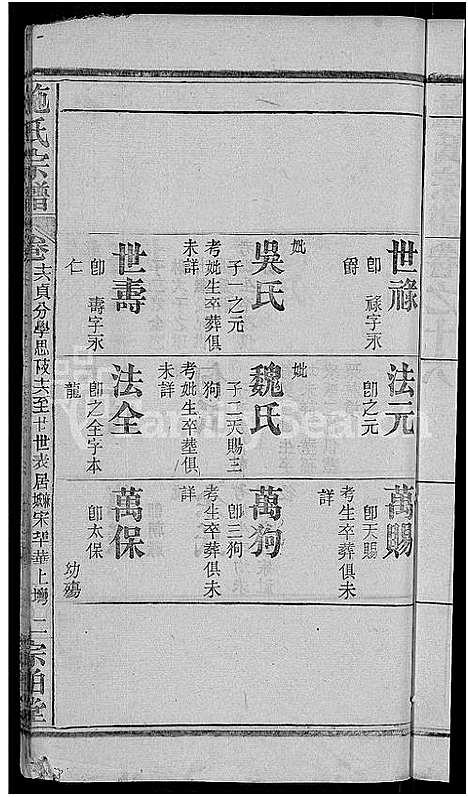 世祿
即祿字永
爵
妣
吳氏
子一之元
考妣生卒葬俱
未詳
世壽
即壽字永
仁
法元
即之元
妣
魏氏
子二天賜三
狗
考妣生卒塟俱
未詳
法全
即之全字本
龍
萬賜
即天賜
考生卒葬俱未
詳
萬狗
即三狗
考生卒葬俱未
詳
萬保
即太保
幼殤
施氏宗譜
卷十六貞分學思
十六至廿世表居
宋
華上灣
二
宗伯堂
FamilySearch